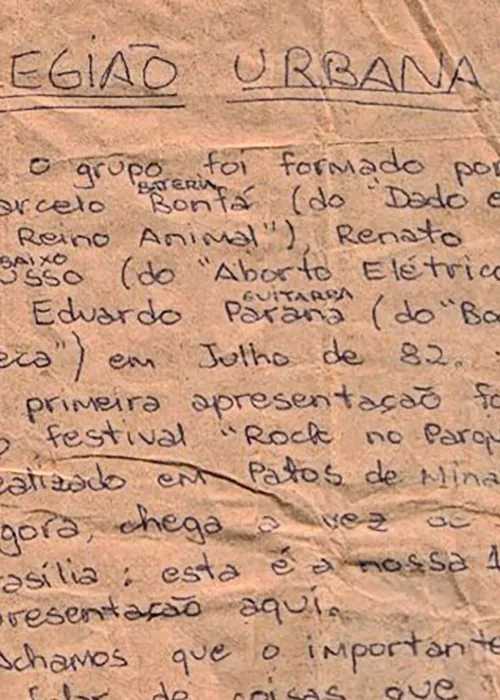 EGIÃO URBANA
O grupo foi formado por
BATERIA
arcelo Bonfá (do "Dado e
Reino Animal"), Renato
BAIXO
usso (do "Aborto Elétrico
GUITARRA
Eduardo Paraná (do "Bo
eca") em Julho de 82.
primeira apresentação fo
o festival "Rock no Parqu
ealizado em Patos de Mina
gora, chega a vez de
rasília: esta é a nossa 1
presentação aqui.
Achamos que o importante
falar de coisas que